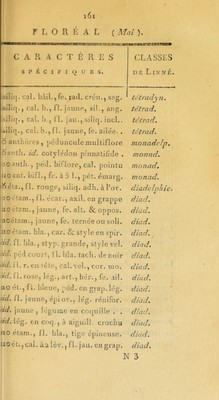 161
FLORÉAL (Mai).
CARACTÈRES
SPÉCIFIQUES.
CLASSES
DE LINNÉ.
siliq. cal. bâil., fe. rad. crén., seg. tétradyn.
siliq., cal. b., fl. jaune, sil., ang. tétrad.
siliq., cal. b., fl. jau., siliq. incl.. tétrad.
siliq., cal. b., fl. jaune, fe. ailée. . tétrad.
anthères, péduncule multiflore monadelp.
anth. id. cotylédon pinnatifide . monad.
anth., péd. biflore, cal. pointu monad.
ant. bifl., fr. à 5 l., pét. émarg. monad.
éta., fl. rouge, siliq. adh. à l'or. diadelphie.
10 étam., fl. écar., axil. en grappe diad.
10 étam., jaune, fe. alt. & oppos. diad.
10 étam., jaune, fe. ternée ou soli. diad.
10 étam. bla., car. & style en spir. diad.
id. fl. bla., styp. grande, style vel. diad.
id. péd court, fl. bla. tach. de noir diad.
id. fl. r. en tête, cal. vel., cor. mo. diad.
id. fl. rose, lég., art., hér., fe. ail. diad.
10 ét., fl. bleue, péd. en grap. lég. diad.
id. fl. jaune, épi or., lég. rénifor. diad.
id. jaune, légume en coquille . . diad.
id. lég. en coq., à aiguill. crochu diad.
10 étam., fl. bla., tige épineuse. diad.
10 ét., cal. à 2 lèv., fl. jau. en grap. diad.
N 3